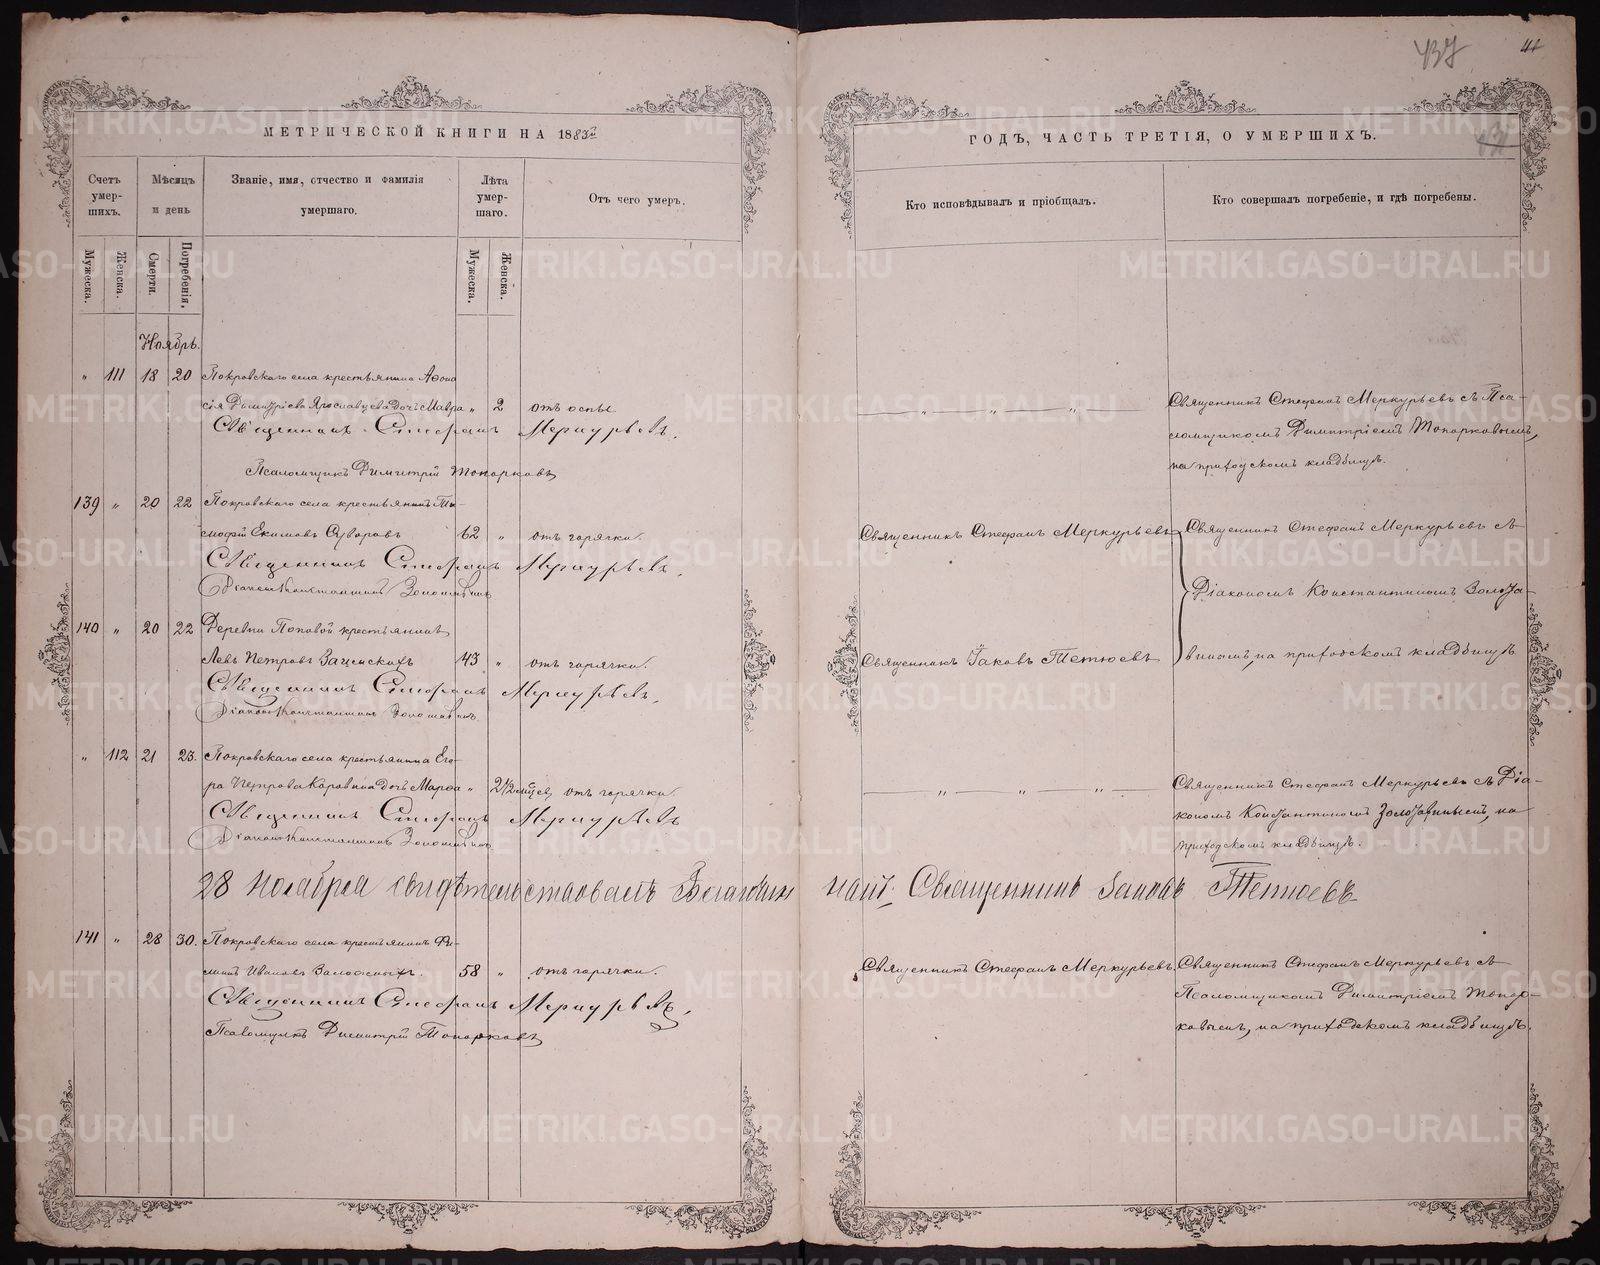 437
МЕТРИЧЕСКОЙ КНИГИ НА 1883й
ГОДЪ, ЧАСТЬ ТРЕТІЯ, О УМЕРШИХЪ.
Счетъ умер-шихъ.
Мѣсяцъ и день
Званіе, имя, отчество и фамилія умершаго.
Лѣта умер-шаго.
Отъ чего умеръ.
Кто исповѣдывалъ и пріобщалъ.
Кто совершалъ погребеніе, и гдѣ погребены.
Мужеска.
Женска.
Смерти.
Погребенія.
Мужеска.
Женска.
Ноябрь.
" 111 18 20 Покровскаго села крестьянина Аѳона
сія Дмитріева Ярославцева дочь Мавра " 2 отъ оспы
Священникъ Стефанъ Меркурьевъ.
Псаломщикъ Димитрій Топорковъ
Священникъ Стефанъ Меркурьевъ съ Пса-
ломщикомъ Димитріемъ Топорковымъ,
на приходскомъ кладбищѣ.
139 " 20 22 Покровскаго села крестьянинъ Ти-
мофѣй Екимовъ Суворовъ 62 " отъ горячки.
Священникъ Стефанъ Меркурьевъ.
Діаконъ Константинъ Золотавинъ
Священникъ Стефанъ Меркурьевъ
Священникъ Стефанъ Меркурьевъ съ
Діакономъ Константиномъ Золота-
140 " 20 22 Деревни Поповой крестьянинъ
Левъ Петровъ 43 " отъ горячки.
Священникъ Стефанъ Меркурьевъ.
Діаконъ Константинъ Золотавинъ
Священникъ Іаковъ Тетюевъ
винымъ, на приходскомъ кладбищѣ
" 112 21 23. Покровскаго села крестьянина Его-
ра Петрова Коровина дочь Марѳа " 2 1/2 мѣсец. отъ горячки.
Священникъ Стефанъ Меркурьевъ
Діаконъ Константинъ Золотавинъ
Священникъ Стефанъ Меркурьевъ съ Діа-
кономъ Константиномъ Золотавинымъ, на
приходскомъ кладбищѣ.
28 Ноября свидѣтельствовалъ Благочин
ный: Священникъ Іаковъ Тетюевъ
141 " 28 30. Покровскаго села крестьянинъ Фи-
липъ Ивановъ 58 " отъ горячки.
Священникъ Стефанъ Меркурьевъ.
Псаломщикъ Димитрій Топорковъ
Священникъ Стефанъ Меркурьевъ.
Священникъ Стефанъ Меркурьевъ съ
Псаломщикомъ Димитріемъ Топор-
ковымъ, на приходскомъ кладбищѣ.
METRIKI.GASO-URAL.RU